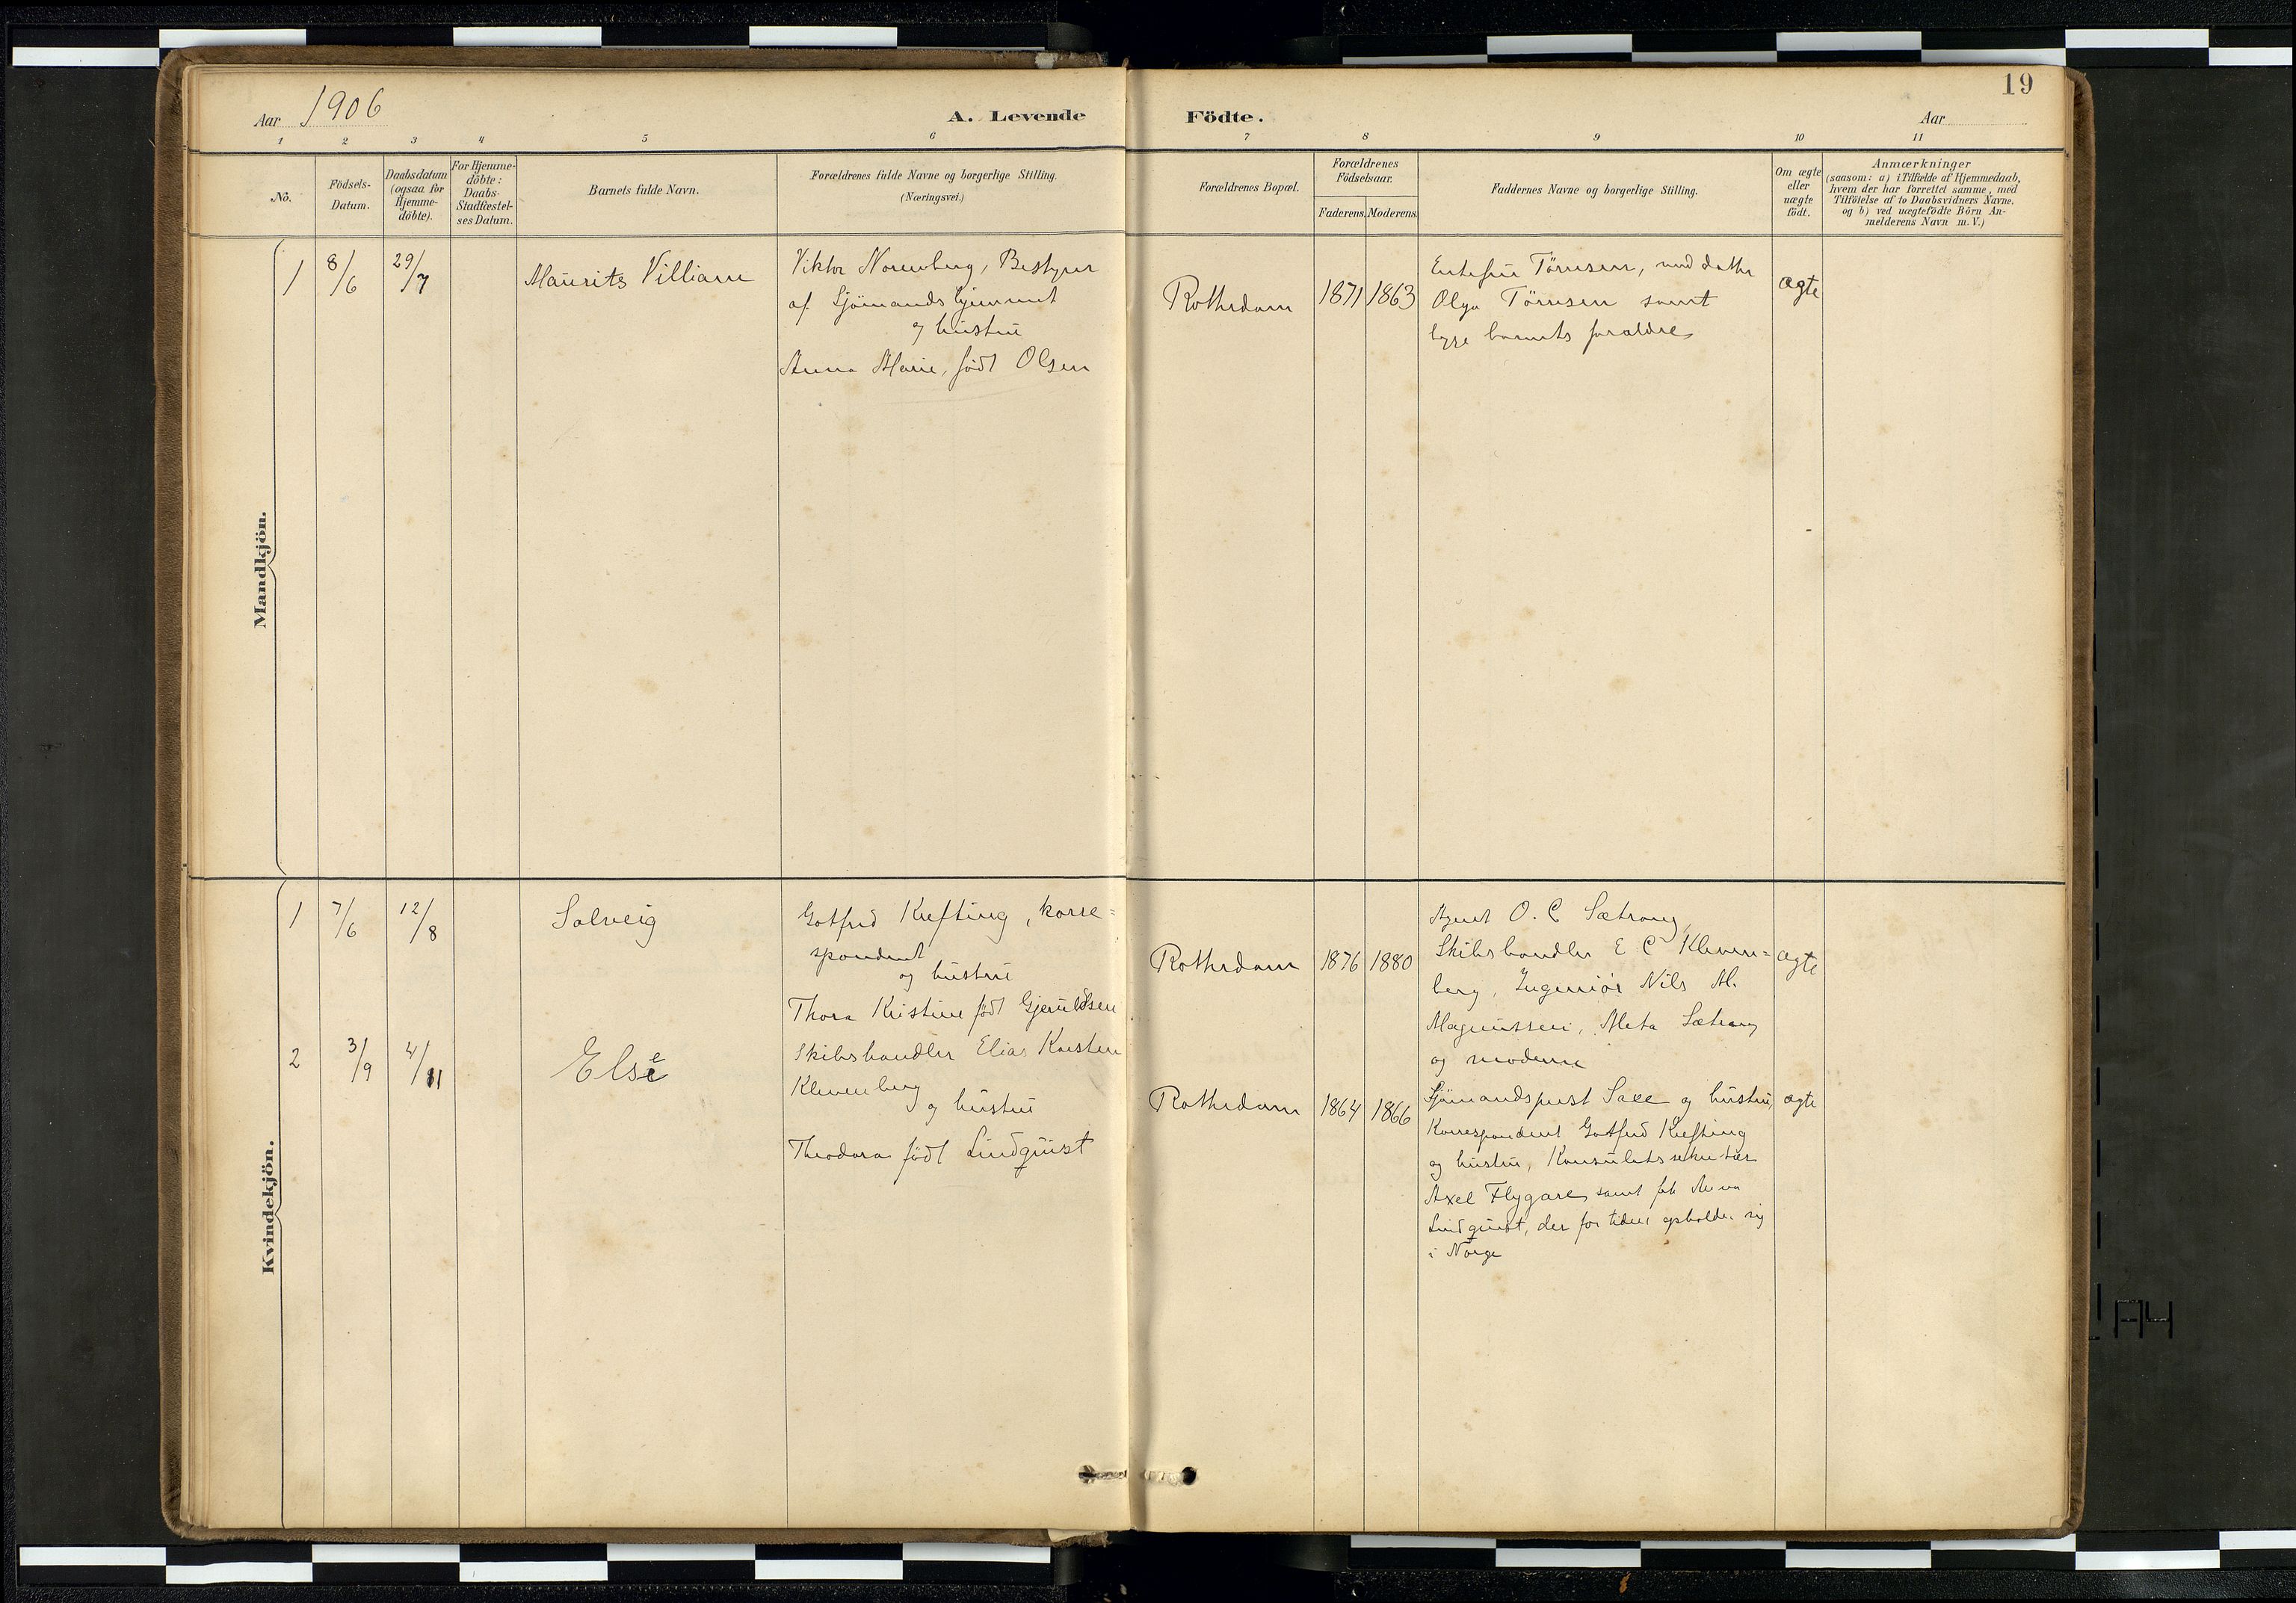 19
Aar 1906
A. Levende Födte.
Aar
1 2 3 4 5 6 7 8 9 10 11
No.
Födsels-
Datum.
Daabsdatum
(ogsaa for
Hjemme-
döbte).
For Hjemme-
döbte:
Daabs-
Stadfæstel-
ses Datum.
Barnets fulde Navn.
Forældrenes fulde Navne og borgerlige Stilling.
(Næringsvei.)
Forældrenes Bopæl.
Forældrenes
Födselsaar.
Faderens. Moderens.
Faddernes Navne og borgerlige Stilling.
Om ægte
eller
uægte
födt.
Anmærkninger
(saasom: a) i Tilfælde af Hjemmedaab,
hvem der har forrettet samme, med
Tilföielse af to Daabsvidners Navne.
og b) ved uægtefödte Börn An-
melderens Navn m. V.)
Mandkjön.
1 8/6 29/7 Maurits Villiam
Viktor Noremberg, Bestyrer
af Sjömandshjemmet
og hustru
Anna Marie, födt Olsen
Rotterdam 1871 1863
Enkefru Törnsen, med datter
Olga Törnsen samt
begge barnets forældre
ægte
Kvindekjön.
1 7/6 12/8 Solveig
Gotfred Krefting, korre=
spondent
og hustru
Thora Kristine födt Gjeruldsen
Rotterdam 1876 1880
Agent O. C Sætrang,
Skibshandler E C Kleven=
berg, Ingeniör Nils M.
Magnussen, Meta Sætrang
og moderen
ægte
2 3/9 4/11 Else
Skibshandler Elias Karsten
Klevenberg
og hustru
Theodora födt Lindquist
Rotterdam 1864 1866
Sjömandsprest Saxe og hustru,
Korrespondent Gotfred Krefting
og hustru, Konsulatssekretær
Axel Flygare samt frk Anna
Lindquist, der for tiden opholder sig
i Norge
ægte